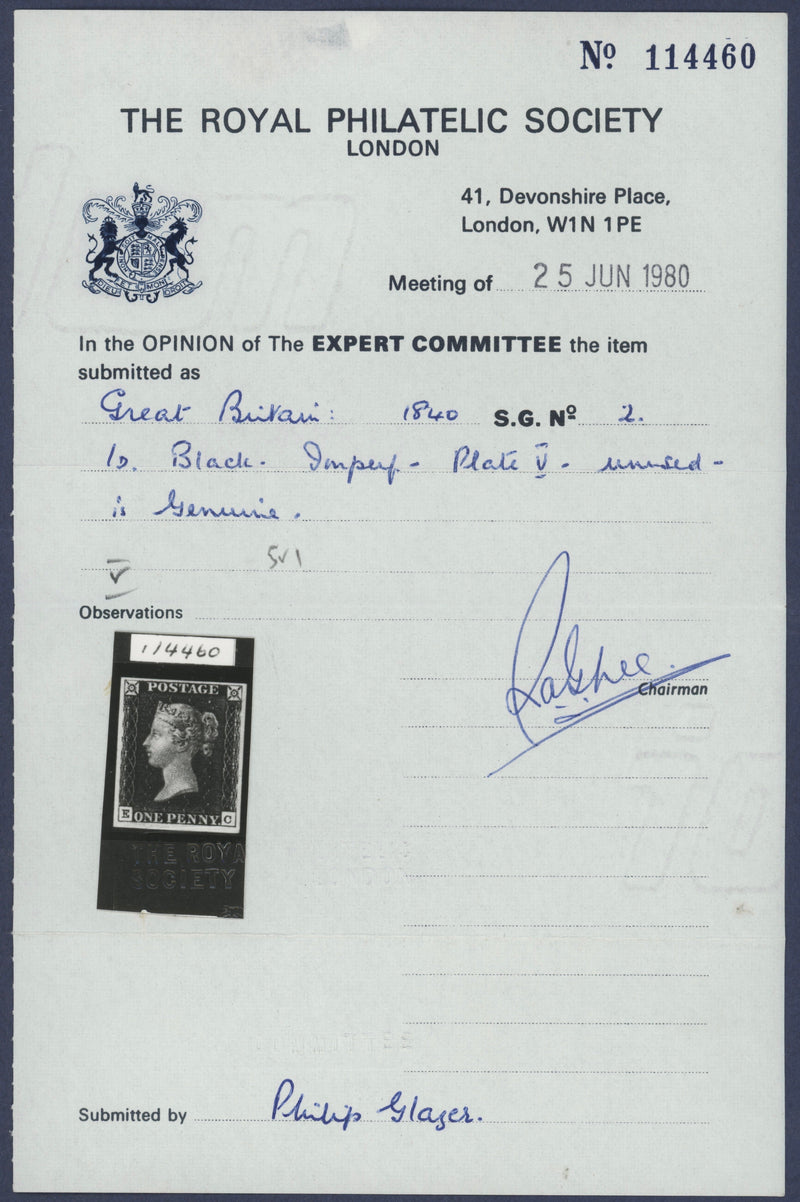 Nº 114460
THE ROYAL PHILATELIC SOCIETY
LONDON
41, Devonshire Place,
London, W1N 1PE
DIEU ET MON DROIT
Meeting of 25 JUN 1980
In the OPINION of The EXPERT COMMITTEE the item
submitted as
Great Britain: 1840 S.G. Nº 2.
1D. Black. Imperf - Plate V - unused -
is Genuine.
V
Observations
114460
POSTAGE
E ONE PENNY. C
THE ROYA
SOCIETY
Chairman
Submitted by Philip Glazer.